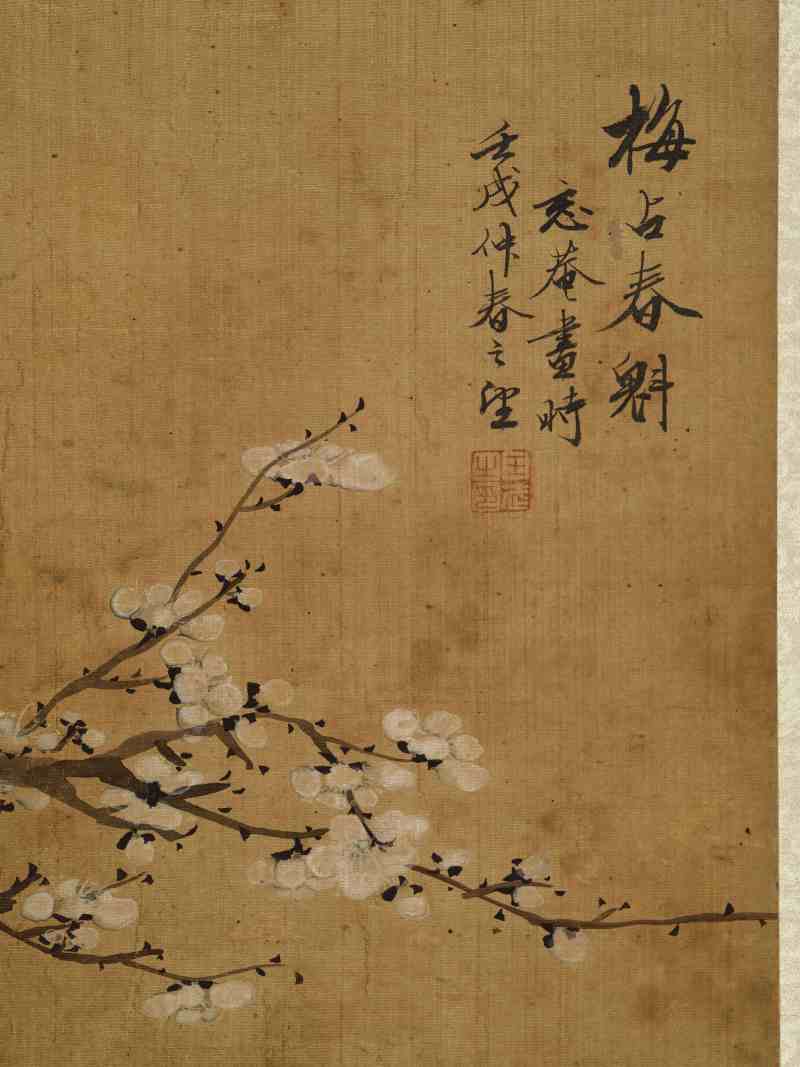 梅占春魁
忘菴畫時
壬戌仲春之望